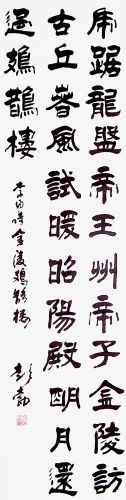 虎踞龍盤帝王州帝子金陵訪
古丘春風試暖昭陽殿明月還
過鳷鵲樓
李白詩金陵鳷鵲樓